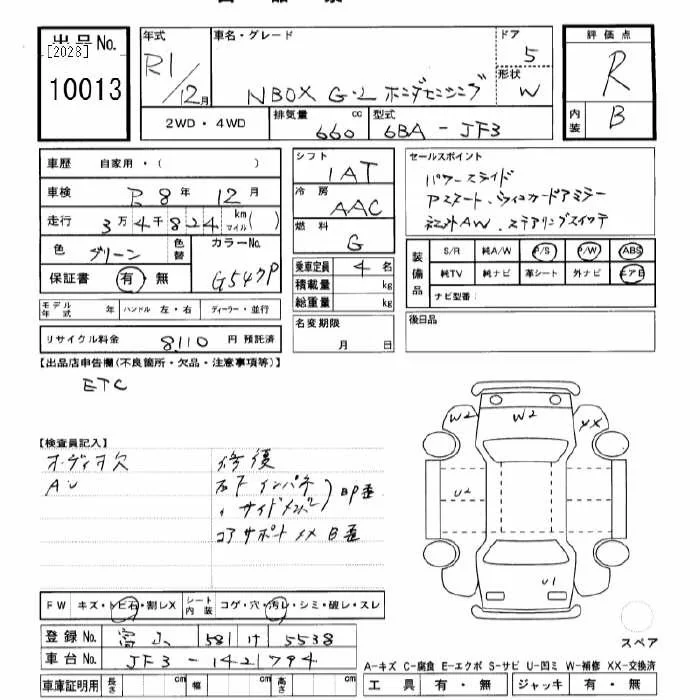 出品No.
[2028]
10013
年式
R1/12月
車名・グレード
NBOX G・L ホンダセンシング
ドア
5
形状
W
評価点
R
内装
B
2WD・4WD
排気量
660 cc
型式
6BA - JF3
車歴 自家用・( )
車検 R 8年 12月
走行 3万4千824 km マイル ( )
色 グリーン
色替
カラーNo.
G547P
保証書 有・無
モデル年式 年
ハンドル 左・右
ディーラー・並行
リサイクル料金 8,110 円 預託済
シフト
IAT
冷房
AAC
燃料
G
乗車定員 4 名
積載量 kg
総重量 kg
名変期限
月 日
セールスポイント
パワースライド
社外AW、ステアリングスイッチ
装備品
S/R 純A/W P/S P/W ABS
純TV 純ナビ 革シート 外ナビ エアB
ナビ型番:
後日品
【出品店申告欄(不良箇所・欠品・注意事項等)】
ETC
【検査員記入】
オーディオ欠
AU
修復
右F インパネ
〃 サイドメンバー
BP歪
コアサポート XX B歪
W2
W2
XX
U2
U1
FW キズ・トビ石・割レX
シート内装 コゲ・穴・汚レ・シミ・破レ・スレ
登録No. 富山 581 け 5538
車台No. JF3 - 1421794
車庫証明用 長さ cm 幅 cm 高さ cm
スペア
A-キズ C-腐食 E-エクボ S-サビ U-凹ミ W-補修 XX-交換済
工具 有・無 ジャッキ 有・無